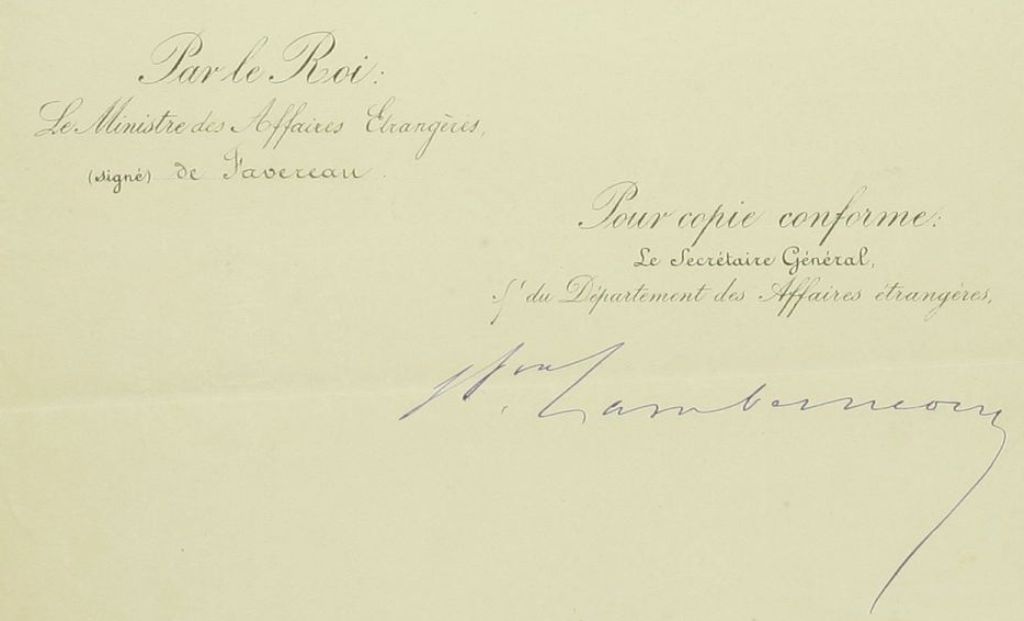 Par le Roi:
Le Ministre des Affaires Etrangères,
(signé) de Favereau.
Pour copie conforme:
Le Secrétaire Général,
du Département des Affaires étrangères,
Lambermont